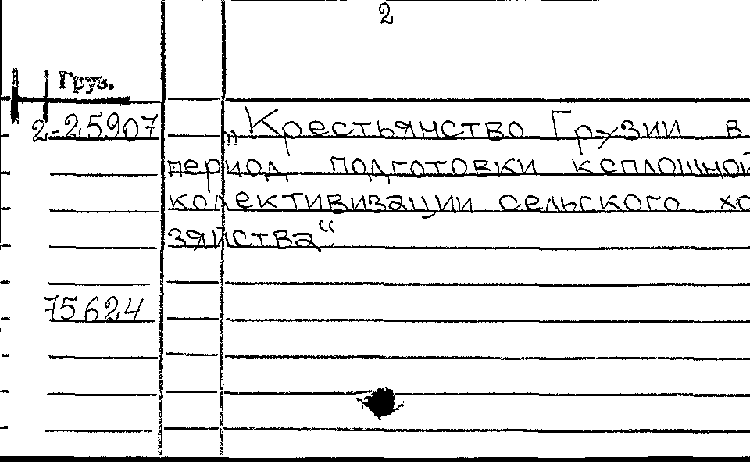 2
Груз.
2-25907
„Крестьянство Грузии в
период подготовки ксплошной
колективизации сельского хо
зяйства“
75624